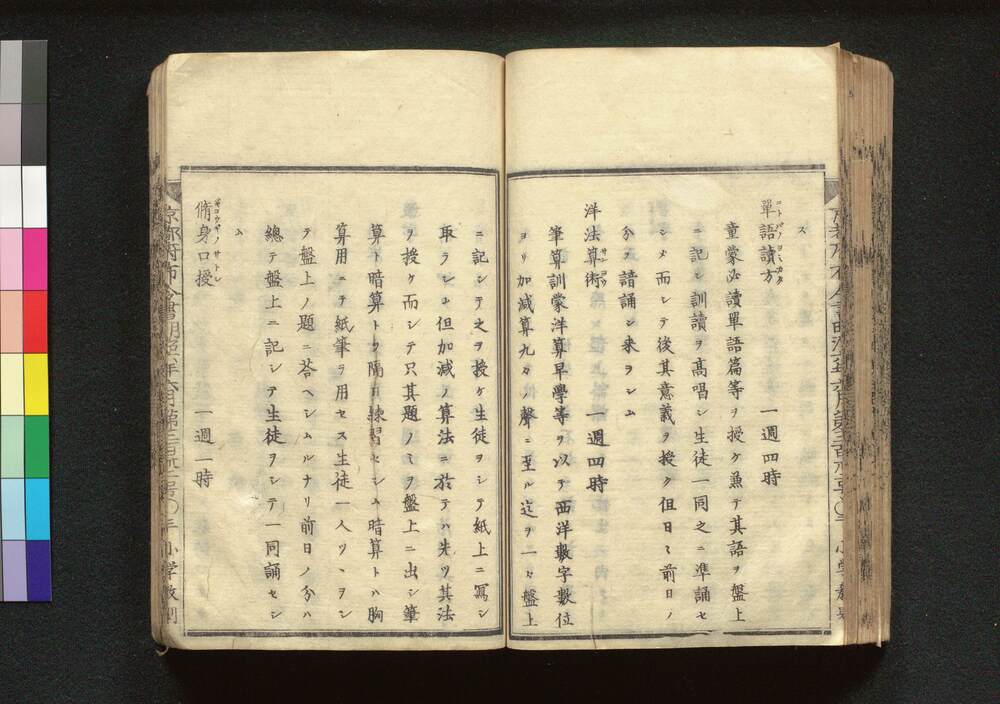 ス
單語讀方 一週四時
コトバノヨミカタ
童蒙必讀單語篇等ヲ授ケ兼テ其語ヲ盤上
ニ記シ訓讀ヲ高唱シ生徒一同之ニ準誦セ
シメ而シテ後其意義ヲ授ク但日〻前日ノ
分ヲ諳誦シ來ヲシム
洋法算術 一週四時
サンヨウ
筆算訓蒙洋算早學等ヲ以テ西洋數字數位
ヨリ加減算九々ノ聲ニ至ル迄ヲ一々盤上
ニ記シテ之ヲ授ケ生徒ヲシテ紙上ニ寫シ
取ラシム但加減ノ算法ニ於テハ先ツ其法
ヲ授ケ而シテ只其題ノミヲ盤上ニ出シ筆
算ト暗算トヲ隔日練習セシム暗算トハ胸
算用ニテ紙筆ヲ用セス生徒一人ツヽヲシ
テ盤上ノ題ニ荅ヘシムルナリ前日ノ分ハ
總テ盤上ニ記シテ生徒ヲシテ一同誦セシ
ム
脩身口授 一週一時
ギヨウギノサトシ
京都府布令書明治六年六月第三百
小學教則